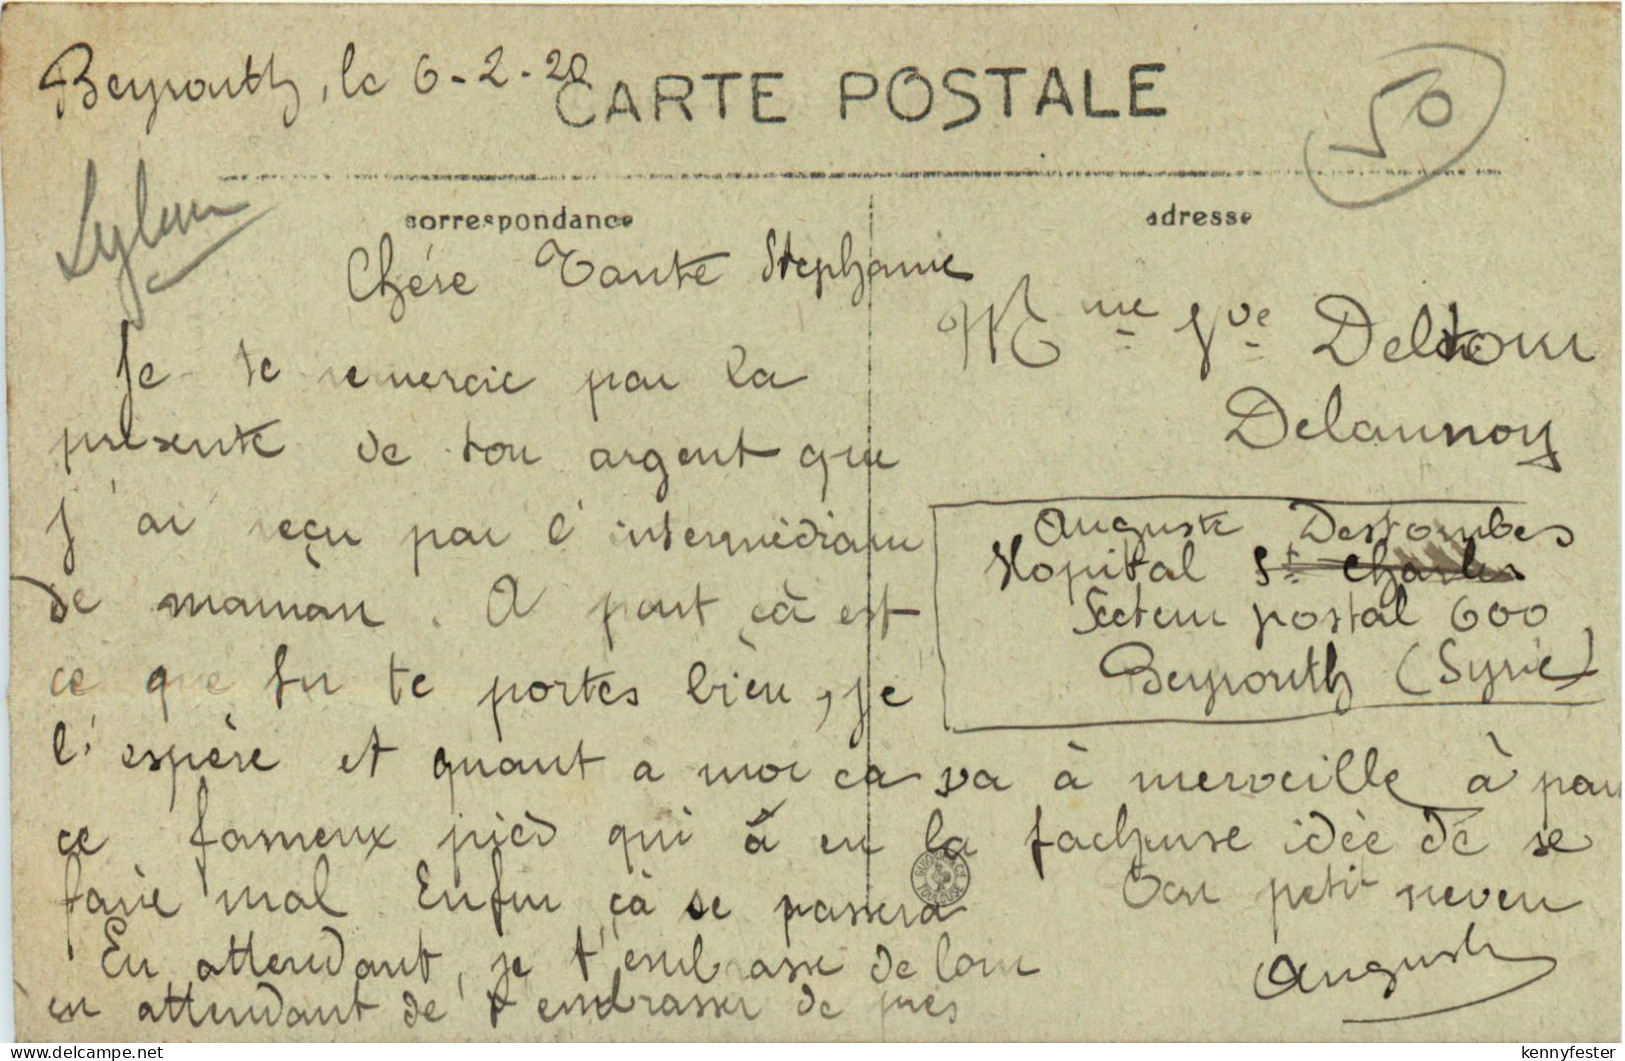 Beyrouth, le 6-2-20
CARTE POSTALE
50
correspondance
adresse
Chére Tante Stephanie
Je te remercie par la
présente de ton argent que
j'ai reçu par l'intermédiaire
de maman. A part çà est
ce que tu te portes bièn, je
l'espère et quant a moi ca va à merveille à part
ce fameux pièd qui à eu la facheuse idée dé se
faire mal Enfin çà se passera
En attendant, je t'embrasse de loin
en attendant de t'embrasser de près
Ton petit neveu
Auguste
Mme Vve Deltour
Delaunoy
Auguste Destombes
Hopital St Charles
Secteur postal 600
Beyrouth (Syrie)
kennyfester